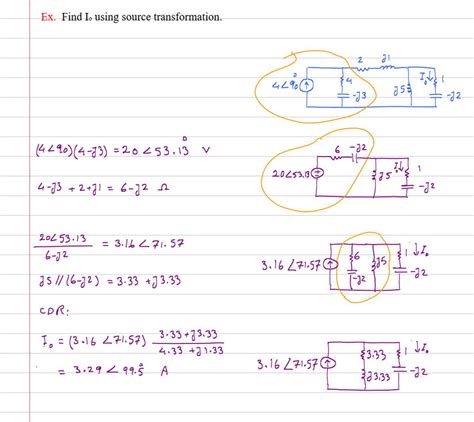 Ex. Find Iₒ using source transformation.
2 j1
4∠90° 4 -j3 j5 Iₒ↓ 1 -j2
(4∠90)(4-j3) = 20∠53.13° V
6 -j2
20∠53.13 j5 Iₒ↓ 1 -j2
4-j3 + 2+j1 = 6-j2 Ω
20∠53.13 / 6-j2 = 3.16∠71.57
3.16∠71.57 6 -j2 j5 1 ↓Iₒ -j2
j5 // (6-j2) = 3.33 + j3.33
CDR:
Iₒ = (3.16∠71.57) 3.33+j3.33 / 4.33+j1.33
3.16∠71.57 3.33 j3.33 1 ↓Iₒ -j2
= 3.29∠99.5° A